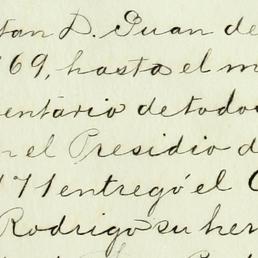 tan D. Juan de
69, hasta el m
entario de todo
n el Presidio d
71 entregó el C
Rodrigo su her